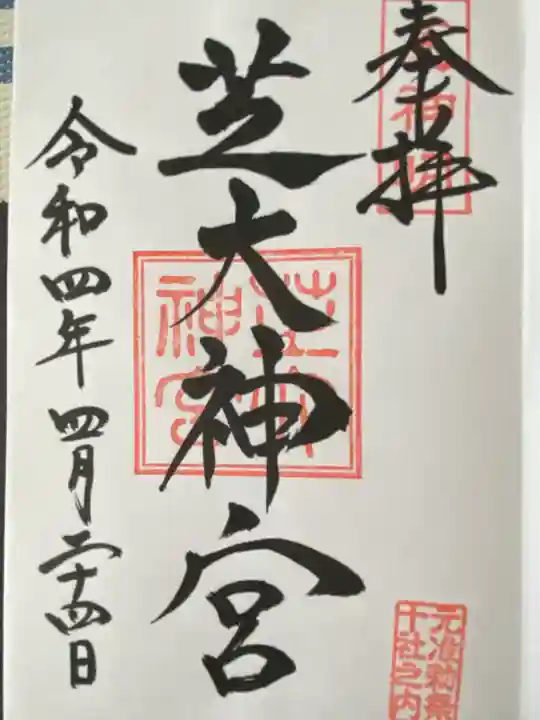 奉拝
芝大神宮
令和四年四月二十四日
芝大神宮
元准勅祭
十社之内